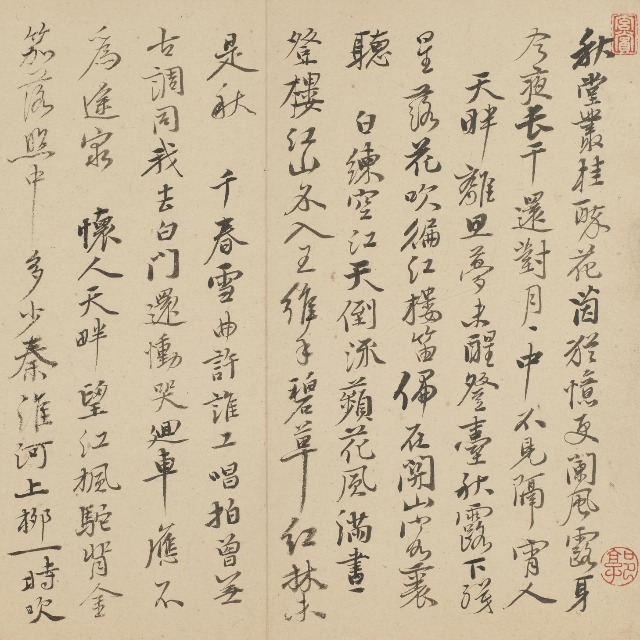 秋堂叢桂酥花茵猶憶更闌風露身
今夜長干還對月月中不見隔宵人
天畔離思夢未醒登臺秋露下殘
星落花吹徧江樓笛偏在關山客裏
聽 白練空江天倒流蘋花風滿畫
登樓江山不入王維手碧草紅林未
是秋 千春雪曲許誰工唱拍曾無
古調同我去白門還慟哭廻車應不
為途窮 懷人天畔望江楓駝背金
笳落照中 多少秦淮河上柳一時吹